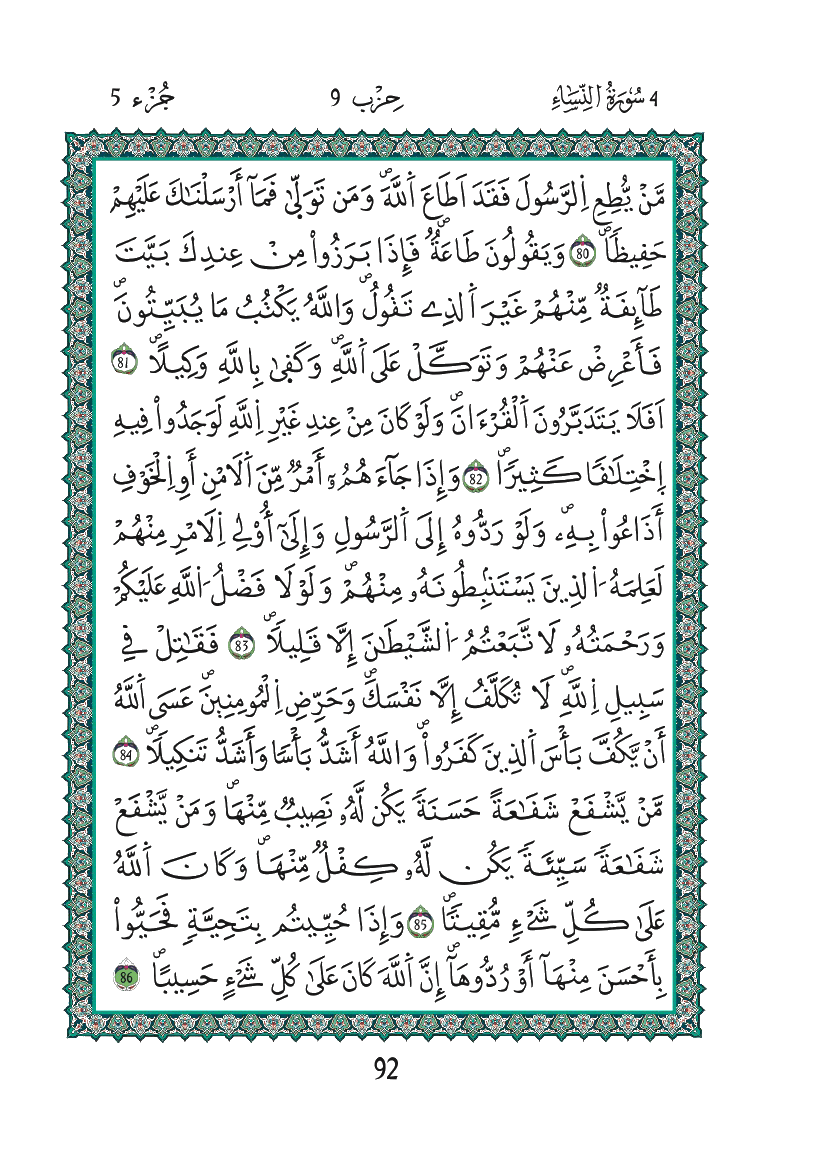 4 سُورَةُ النِّسَاءِ حِزْب 9 جُزْء 5
مَّنْ يُّطِعِ اِ۬لرَّسُولَ فَقَدَ اَطَاعَ اَ۬للَّهَۖ وَمَن تَوَلّ۪يٰ فَمَآ أَرْسَلْنَٰكَ عَلَيْهِمْ
حَفِيظاٗۖ 80 وَيَقُولُونَ طَاعَةٞۖ فَإِذَا بَرَزُواْ مِنْ عِندِكَ بَيَّتَ
طَآئِفَةٞ مِّنْهُمْ غَيْرَ اَ۬لذِے تَقُولُۖ وَاللَّهُ يَكْتُبُ مَا يُبَيِّتُونَۖ
فَأَعْرِضْ عَنْهُمْ وَتَوَكَّلْ عَلَى اَ۬للَّهِۖ وَكَف۪يٰ بِاللَّهِ وَكِيلاًۖ 81
اَفَلَا يَتَدَبَّرُونَ اَ۬لْقُرْءَانَۖ وَلَوْ كَانَ مِنْ عِندِ غَيْرِ اِ۬للَّهِ لَوَجَدُواْ فِيهِ
اِ۪خْتِلَٰفاٗ كَثِيراٗۖ 82 وَإِذَا جَآءَهُمُۥٓ أَمْرٞ مِّنَ اَ۬لَامْنِ أَوِ اِ۬لْخَوْفِ
أَذَاعُواْ بِهِۦۖ وَلَوْ رَدُّوهُ إِلَى اَ۬لرَّسُولِ وَإِلَىٰٓ أُوْلِے اِ۬لَامْرِ مِنْهُمْ
لَعَلِمَهُ اُ۬لذِينَ يَسْتَنۢبِطُونَهُۥ مِنْهُمْۖ وَلَوْلَا فَضْلُ اُ۬للَّهِ عَلَيْكُمْ
وَرَحْمَتُهُۥ لَاتَّبَعْتُمُ اُ۬لشَّيْطَٰنَ إِلَّا قَلِيلاٗۖ 83 فَقَٰتِلْ فِے
سَبِيلِ اِ۬للَّهِۖ لَا تُكَلَّفُ إِلَّا نَفْسَكَۖ وَحَرِّضِ اِ۬لْمُومِنِينَۖ عَسَى اَ۬للَّهُ
أَنْ يَّكُفَّ بَأْسَ اَ۬لذِينَ كَفَرُواْۖ وَاللَّهُ أَشَدُّ بَأْساٗ وَأَشَدُّ تَنكِيلاٗۖ 84
مَّنْ يَّشْفَعْ شَفَٰعَةً حَسَنَةٗ يَكُن لَّهُۥ نَصِيبٞ مِّنْهَاۖ وَمَنْ يَّشْفَعْ
شَفَٰعَةٗ سَيِّئَةٗ يَكُن لَّهُۥ كِفْلٞ مِّنْهَاۖ وَكَانَ اَ۬للَّهُ
عَلَىٰ كُلِّ شَےْءٖ مُّقِيتاٗۖ 85 وَإِذَا حُيِّيتُم بِتَحِيَّةٖ فَحَيُّواْ
بِأَحْسَنَ مِنْهَآ أَوْ رُدُّوهَآۖ إِنَّ اَ۬للَّهَ كَانَ عَلَىٰ كُلِّ شَےْءٍ حَسِيباًۖ 86
92